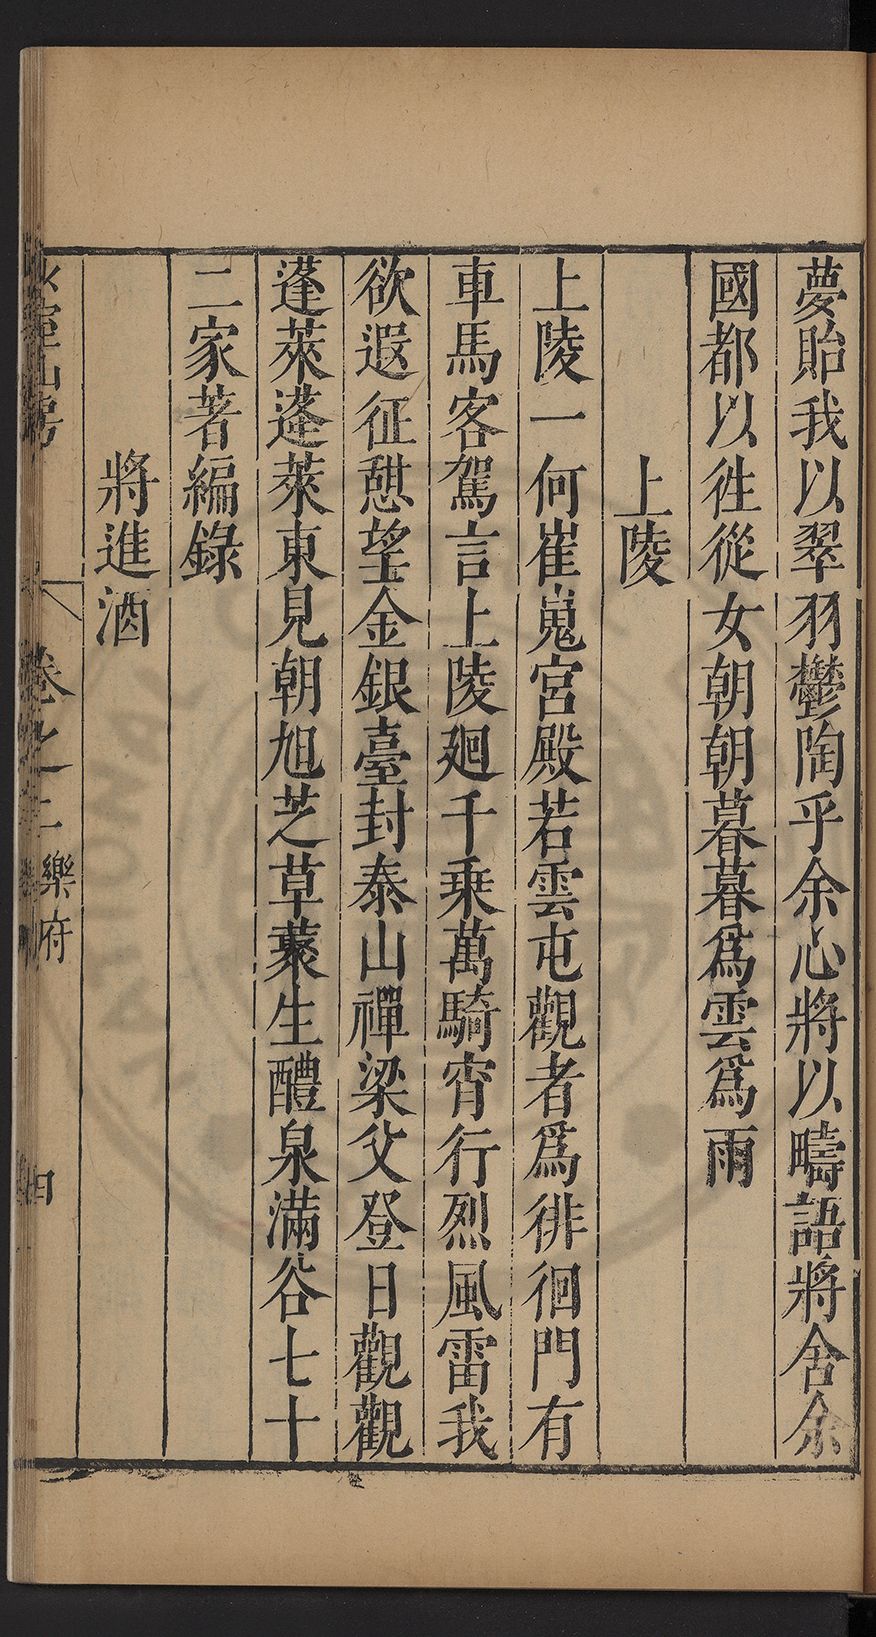 夢貽我以翠羽鬱陶乎余心將以疇語將舍余
國都以徃從女朝朝暮暮爲雲爲雨
上陵
上陵一何崔嵬宮殿若雲屯觀者爲徘徊門有
車馬客駕言上陵廻千乗萬騎宵行烈風雷我
欲遐征憇望金銀臺封泰山禪梁父登日觀觀
蓬萊蓬萊東見朝旭芝草藂生醴泉滿谷七十
二家著編錄
將進酒
卷之二 樂府